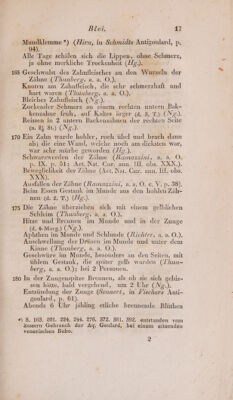 Blei. 17
Mundklemme *) (Hira, in Schmidts Antigoulard, p.
94).
Alle Tage schälen sich die Lippen, ohne Schmerz,
ja ohne merkliche Trockenheit (Hg.).
165 Geschwulst des Zahnfleisches an den Wurzeln der
Zähne (Thunberg, a. a. O.).
Knoten am Zahnfleisch, die sehr schmerzhaft und
hart waren (Thunberg, a. a. O.).
Bleiches Zahnfleisch (Ng.).
Zuckender Schmerz an einem rechten untern Bak-
kenzahne früh, auf Kaltes ärger (d. 8. T.) (Ng.).
Reissen in 2 untern Backenzähnen der rechten Seite
(n. ¾ St.) (Ng.).
170 Ein Zahn wurde hohler, roch übel und brach dann
ab; die eine Wand, welche noch am dicksten war,
war sehr mürbe geworden (Hg.).
Schwarzwerden der Zähne (Ramazzini, a. a. O.
p. IX. p. 51; Act. Nat. Cur. ann. III. obs. XXX.).
Beweglichkeit der Zähne (Act. Nat. Cur. ann. III. obs.
XXX).
Ausfallen der Zähne (Ramazzini, a. a. O. c. V. p. 38).
Beim Essen Gestank im Munde aus den hohlen Zäh-
nen (d. 2. T.) (Hg.).
175 Die Zähne überziehen sich mit einem gelblichen
Schleim (Thunberg, a. a. O.).
Hitze und Brennen im Munde und in der Zunge
(d. 4 Morg.) (Ng.).
Aphthen im Munde und Schlunde (Richter, a. a. O.).
Anschwellung der Drüsen im Munde und unter dem
Kinne (Thunberg, a. a. O.).
Geschwüre im Munde, besonders an den Seiten, mit
üblem Gestank, die später gelb wurden (Thun-
berg, a. a. O.; bei 2 Personen.
180 In der Zungenspitze Brennen, als ob sie sich gebis-
sen hätte, bald vergehend, um 2 Uhr (Ng.).
Entzündung der Zunge (Sennert, in Fischers Anti-
goulard, p. 61).
Abends 6 Uhr jähling etliche brennende Blüthen
*) S. 163. 221. 224. 244. 276. 372. 381. 392. entstanden vom
äussern Gebrauch der Aq. Goulard. bei einem eiternden
venerischen Bubo.
2